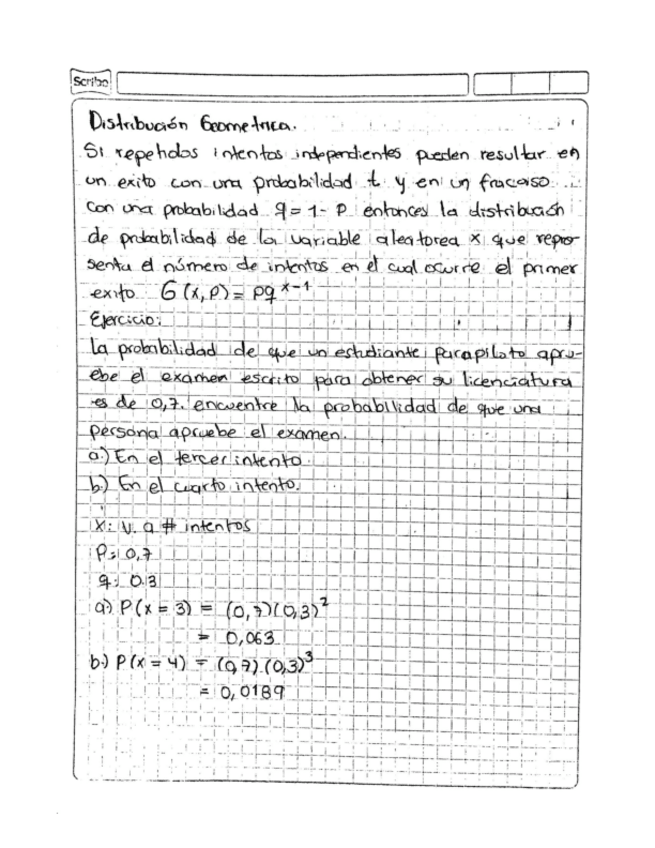 Scribe
Distribución Geometrica.
Si repetidos intentos independientes pueden resultar en
un exito con una probabilidad t y en un fracaso
con una probabilidad q = 1 - P entonces la distribución
de probabilidad de la variable aleatorea x que repre-
senta el número de intentos en el cual ocurre el primer
exito G(x,P) = pq^x-1
Ejercicio:
La probabilidad de que un estudiante para piloto apru-
ebe el examen escrito para obtener su licenciatura
es de 0,7. encuentre la probabilidad de que una
persona apruebe el examen.
a.) En el tercer intento.
b.) En el cuarto intento.
X: V. a # intentos
P: 0,7
q: 0.3
a) P(x = 3) = (0,7)(0,3)^2
= 0,063
b.) P(x = 4) = (0,7).(0,3)^3
= 0,0189